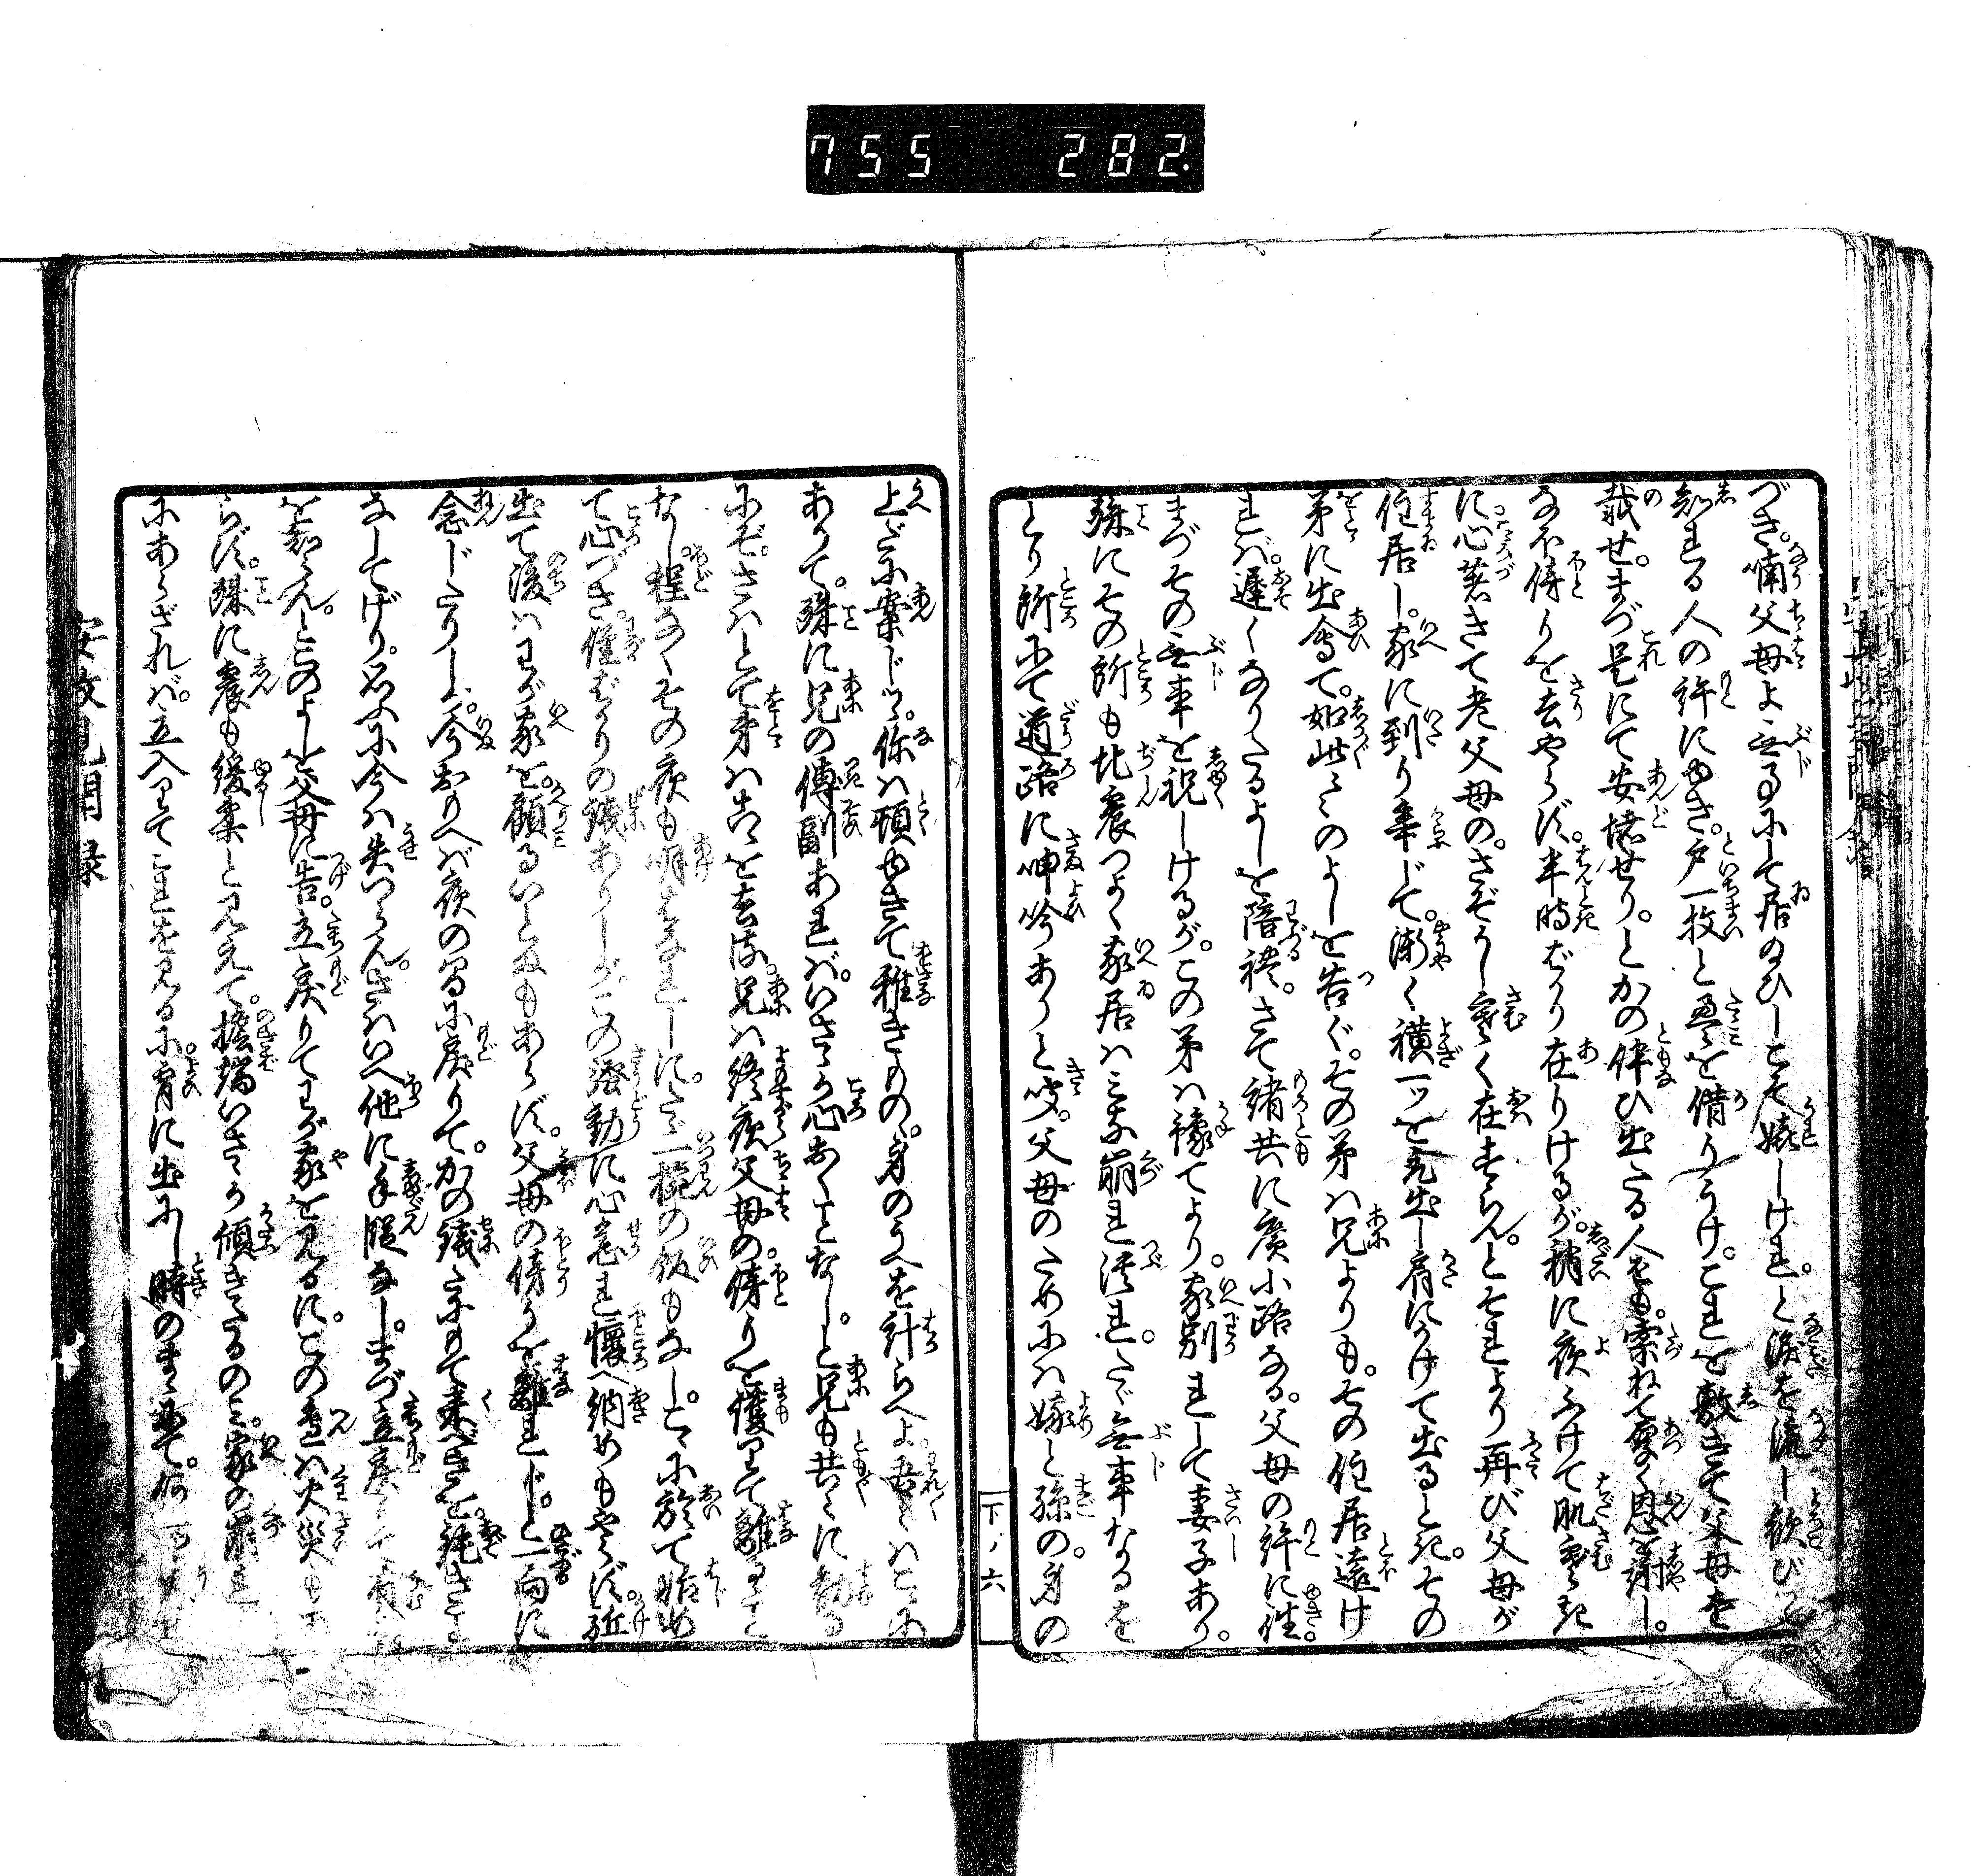 755 282.
づき。喃父母よ無事にて居給ひしこそ嬉しけれ。と涙を流し歓びつゝ
知れる人の許にゆき。戸一枚と畳を借りうけ。これを敷きて父母を
載せ。まづ是にて安堵せり。とかの伴ひ出たる人をも。索ねて厚く恩を謝し。
なほ傍りを去やらず。半時ばかり在りけるが。稍に夜ふけて肌寒き
に心著きて老父母の。さぞかし寒く在すらん。とそれより再び父母が
住居し。家に到り辛じて。漸く襖一ッを見出し肩にかけて出るとき。その
弟に出会て。如此々々のよしを告ぐ。その弟は兄よりも。その住居遠け
れば。遅くなりたるよしを陪礼。さて諸共に広小路なる。父母の許に往。
まづその無事を祝しけるが。この弟は予てより。家別れして妻子あり。
殊にその所も地震つよく家居はみな崩れ潰れ。たゞ無事なるを
とり所にて道路に呻吟ありと咬。父母のためには嫁と孫の。身の
上ざま案じつゝ。你は頓ゆきて稚きものゝ。身のうへを計らへよ。吾々はこゝに
ありて。殊に兄の傅副あれば。いさゝか心おくことなし。と兄も共々に勧る
にぞ。さはとて弟はこゝを去ぬ。兄は終夜父母の。傍りを護りて離るゝこと
なし。程なくその夜も明はなれしに。たゞ一椀の飯もなし。こゝに於て始め
て心づき。僅ばかりの銭ありしが。この騒動に心急れ懐へ納めもやらず。駈
出て後はわが家を。顧るいとまもあらず。父母の傍りを離れじ。と一向に
念じたりしが。今おもへば夜の間に戻りて。かの銭だにもて来べきを。鈍きことを
なしてげり。名に今は失つらん。さはいへ他に手段なし。まづ立戻り
を知らん。とこのよしを父母に告。立戻りてわが家を見るに。この辺は火災もあ
らず。殊に震も緩柔と見えて。檐端いさゝか傾きたるのみ。家の崩れ
にあらざれば。立入りてこれを見るに。宵に出にし時のまゝにて。何
下ノ六
安政見聞録